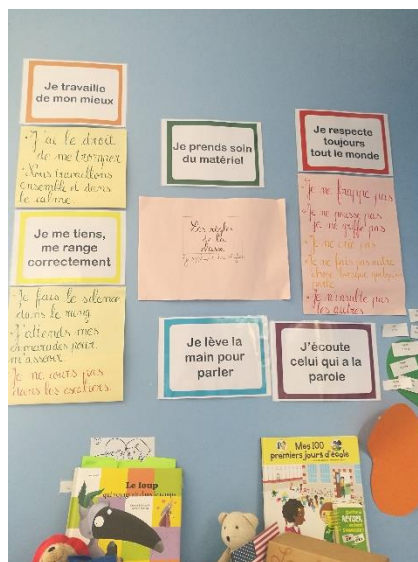 Je travaille
de mon mieux
• J'ai le droit
de me tromper
• Nous travaillons
ensemble et dans
le calme
Je me tiens,
me range
correctement
• Je fais le silence
dans le rang
• J'attends mes
camarades pour
m'asseoir
Je ne cours pas
dans les escaliers.
Je prends soin
du matériel
Les règles
de la
classe
Je respecte
toujours
tout le monde
• Je ne frappe pas
• Je ne pousse pas
je ne griffe pas
• Je ne crie pas
• Je ne fais pas autre
chose lorsque quelqu'un
parle
• Je n'insulte pas
les autres
Je lève la
main pour
parler
J'écoute
celui qui a la
parole
Le loup
Mes 100
premiers jours d'école
RÉVISER